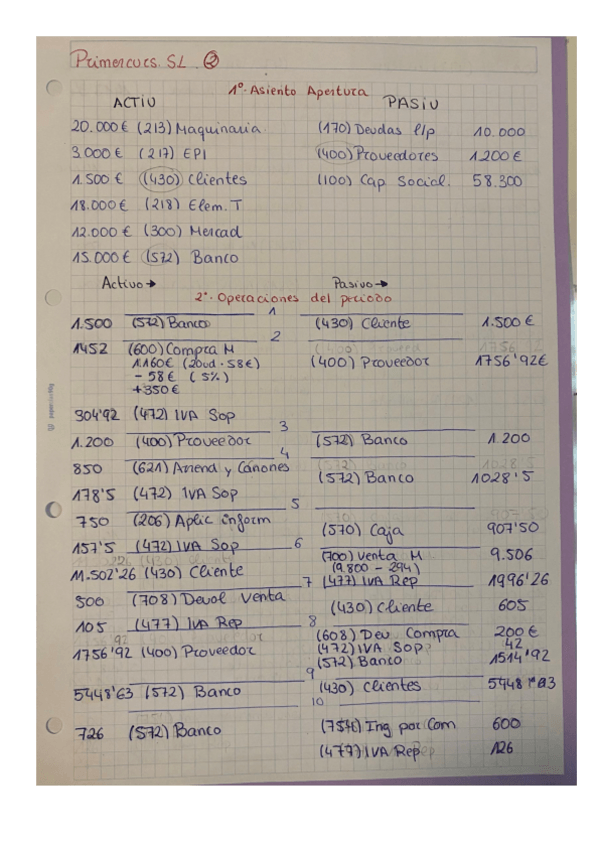 Primercurs. SL. ②
1º. Asiento Apertura
ACTIU PASIU
20.000€ (213) Maquinaria (170) Deudas l/p 10.000
3.000€ (217) EPI (400) Proveedores 1.200€
1.500€ (430) Clientes (100) Cap Social. 58.300
18.000€ (218) Elem. T
12.000€ (300) Mercad
15.000€ (572) Banco
Activo→ Pasivo→
2º. Operaciones del periodo
1
1.500 (572) Banco (430) Cliente 1.500€
2
1452 (600) Compra M (400) Proveedor 1756'92€
1.160€ (20ud · 58€)
- 58€ (5%)
+350€
304'92 (472) IVA Sop
3
1.200 (400) Proveedor (572) Banco 1.200
4
850 (621) Arrend y Cánones (572) Banco 1028'5
178'5 (472) IVA Sop
5
750 (206) Aplic inform (570) Caja 907'50
157'5 (472) IVA Sop
6
(700) Venta M 9.506
(9.800 - 294)
11.502'26 (430) Cliente (477) IVA Rep 1996'26
7
500 (708) Devol Venta (430) Cliente 605
105 (477) IVA Rep
8
(608) Dev Compra 200€
(472) IVA Sop 42
1756'92 (400) Proveedor (572) Banco 1514'92
9
5448'63 (572) Banco (430) Clientes 5448'63
10
726 (572) Banco (754) Ing por Com 600
(477) IVA Rep 126